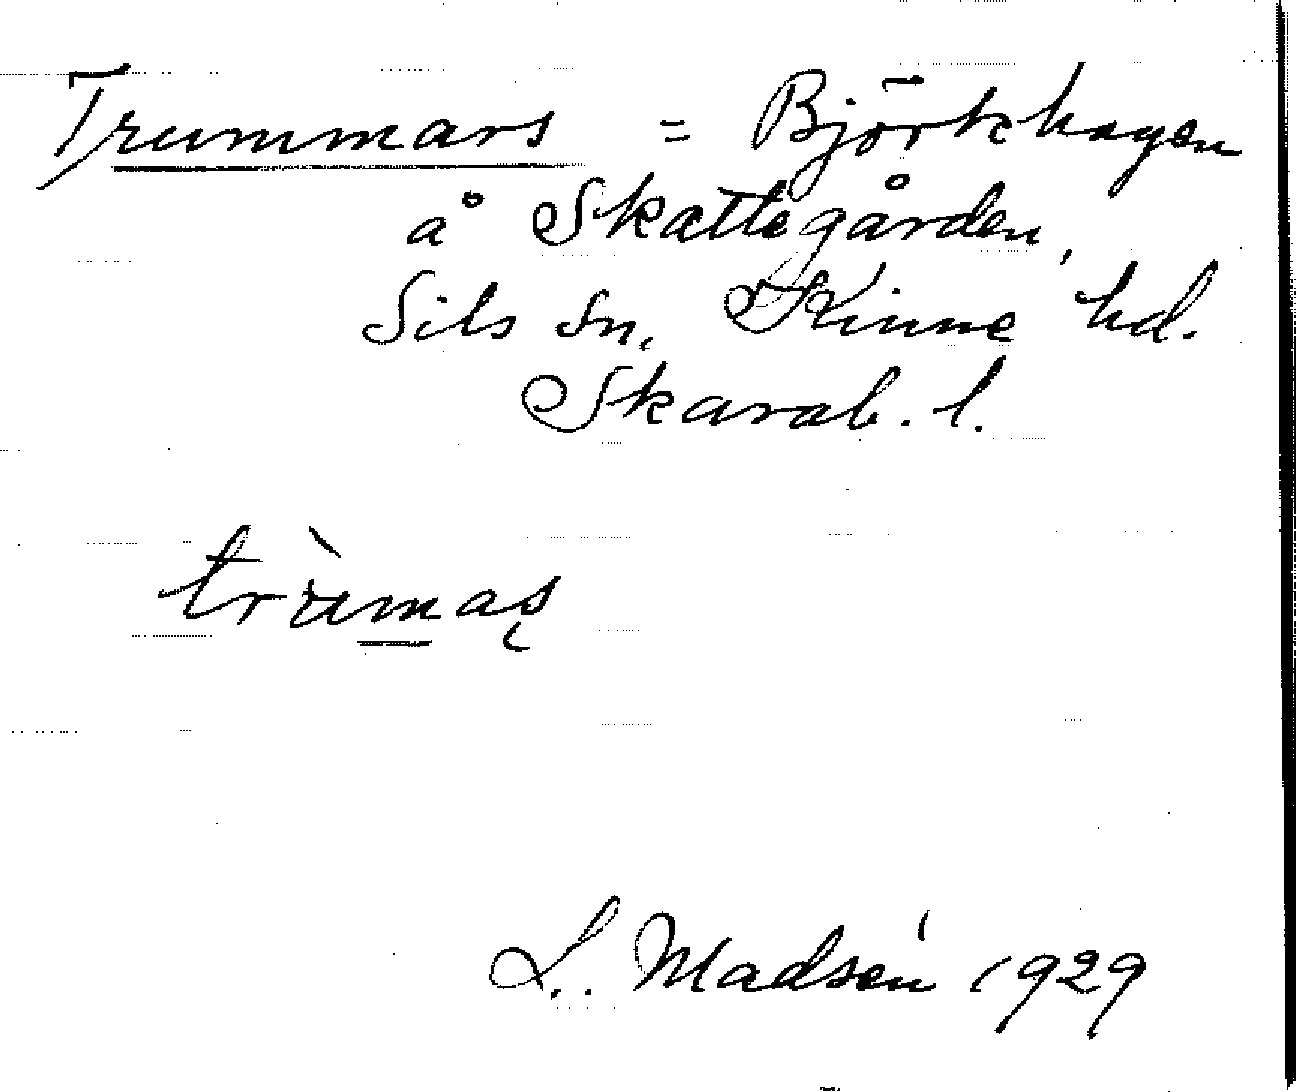 Trummars = Björkhagen
å Skattegården,
Sils sn, Kinne hd.
Skarab. l.
trùmas̨
L. Madsén 1929